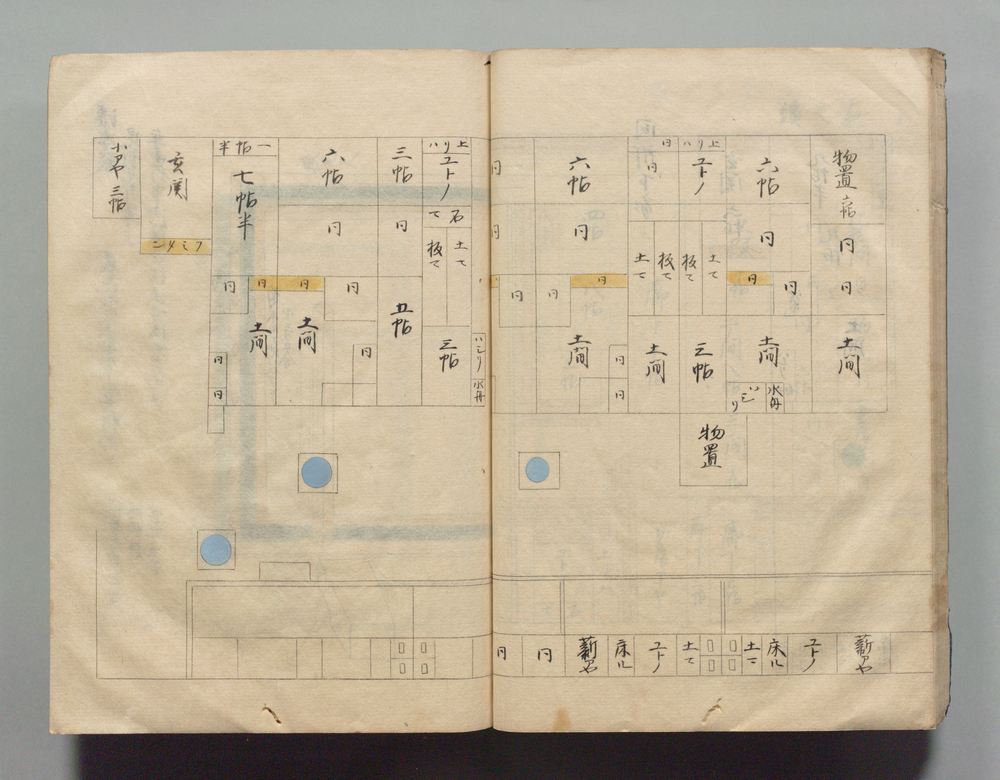 物置 六帖
円
円
土間
六帖
円
円
円
土間
ハシリ
水舟
上リハ
ユトノ
土て
板て
三帖
物置
円
円
板て
土て
土間
六帖
円
円
円
円
土間
円
円
円
円
上リハ
ユトノ
石て
土て
板て
三帖
ハシリ
水舟
三帖
円
五帖
六帖
円
円
円
土間
円
一帖半
七帖半
円
円
土間
円
円
玄関
フミタニ
小アヤ 三帖
薪アヤ
ユトノ
床ル
土て
土て
ユトノ
床ル
薪アヤ
円
円